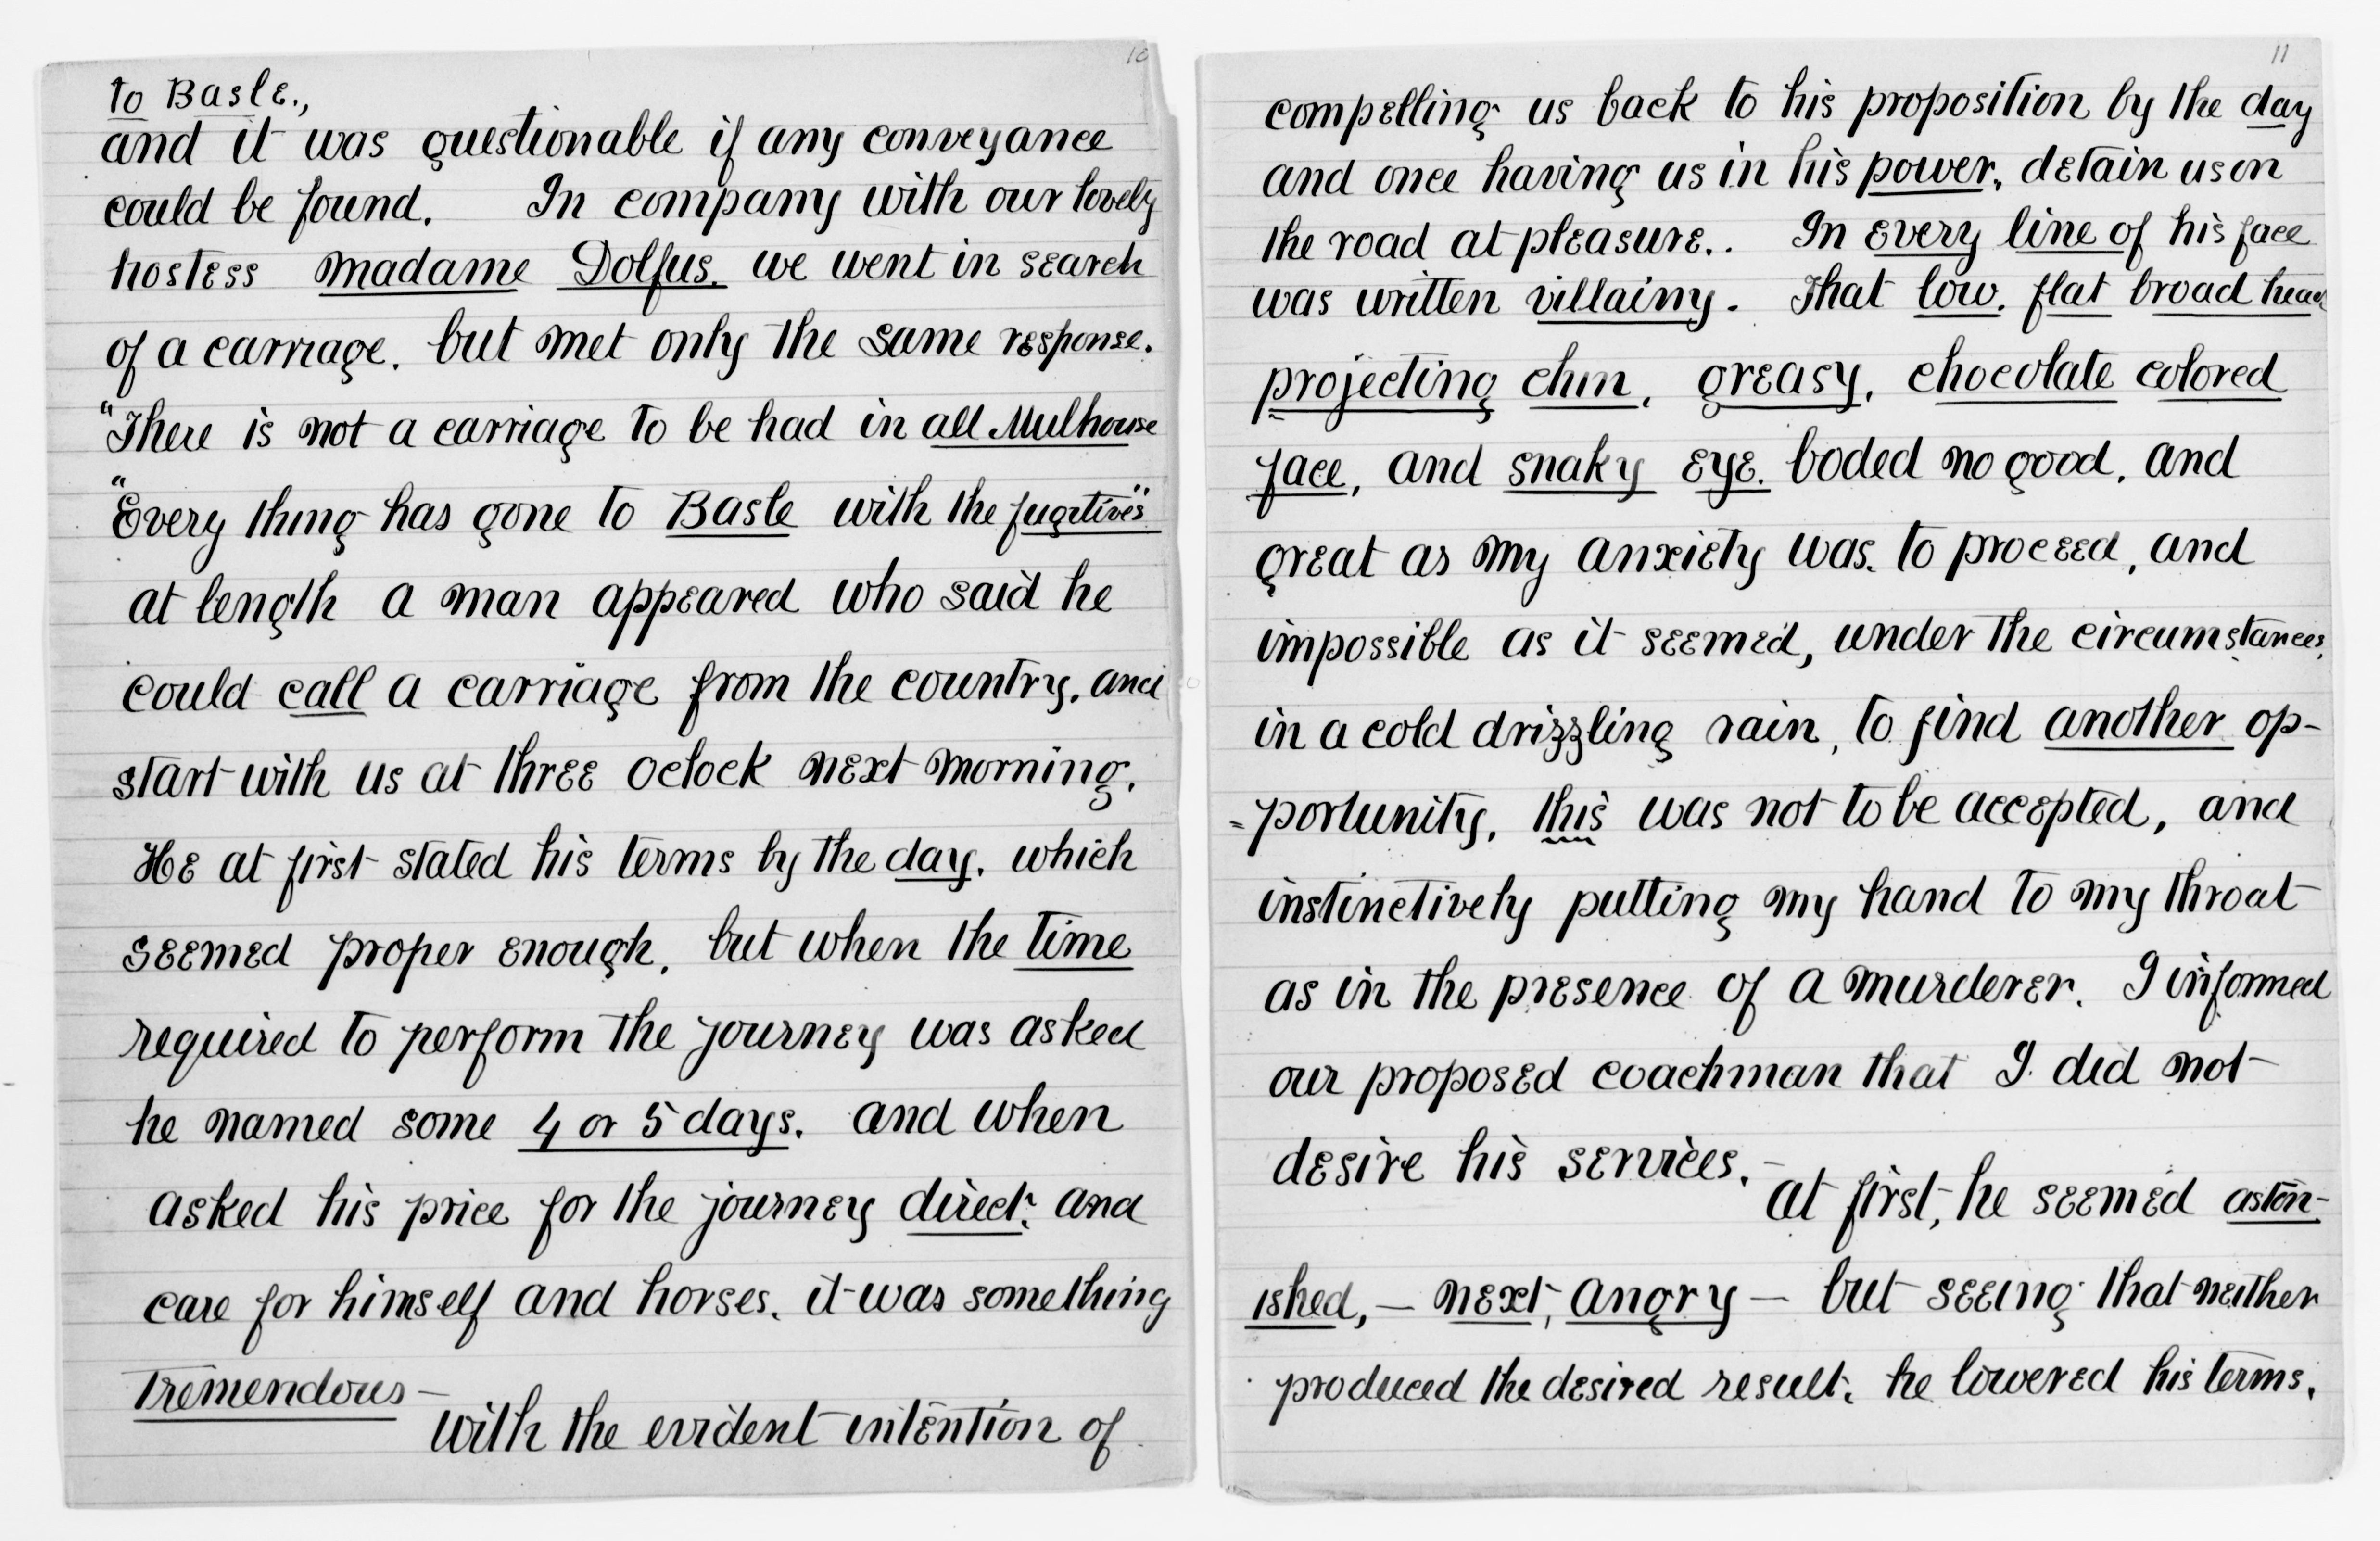 10
to Basle.,
and it was questionable if any conveyance
could be found. In company with our lovely
hostess madame Dolfus. we went in search
of a carriage. but met only the same response.
"There is not a carriage to be had in all Mulhouse
"Every thing has gone to Basle with the fugitives"
at length a man appeared who said he
could call a carriage from the country. and
start with us at three oclock next morning.
He at first stated his terms by the day. which
seemed proper enough. but when the time
required to perform the journey was asked
he named some 4 or 5 days. and when
asked his price for the journey direct. and
care for himself and horses. it was something
tremendous –
with the evident intention of
11
compelling us back to his proposition by the day
and once having us in his power, detain us on
the road at pleasure.. In every line of his face
was written villainy. That low. flat broad head
projecting chin, greasy, chocolate colored
face, and snaky eye. boded no good, and
great as my anxiety was. to proceed, and
impossible as it seemed, under the circumstances,
in a cold drizzling rain, to find another op-
=portunity, this was not to be accepted, and
instinctively putting my hand to my throat
as in the presence of a murderer. I informed
our proposed coachman that I did not
desire his services. –
at first, he seemed aston-
ished, – next, angry – but seeing that neither
produced the desired result. he lowered his terms.